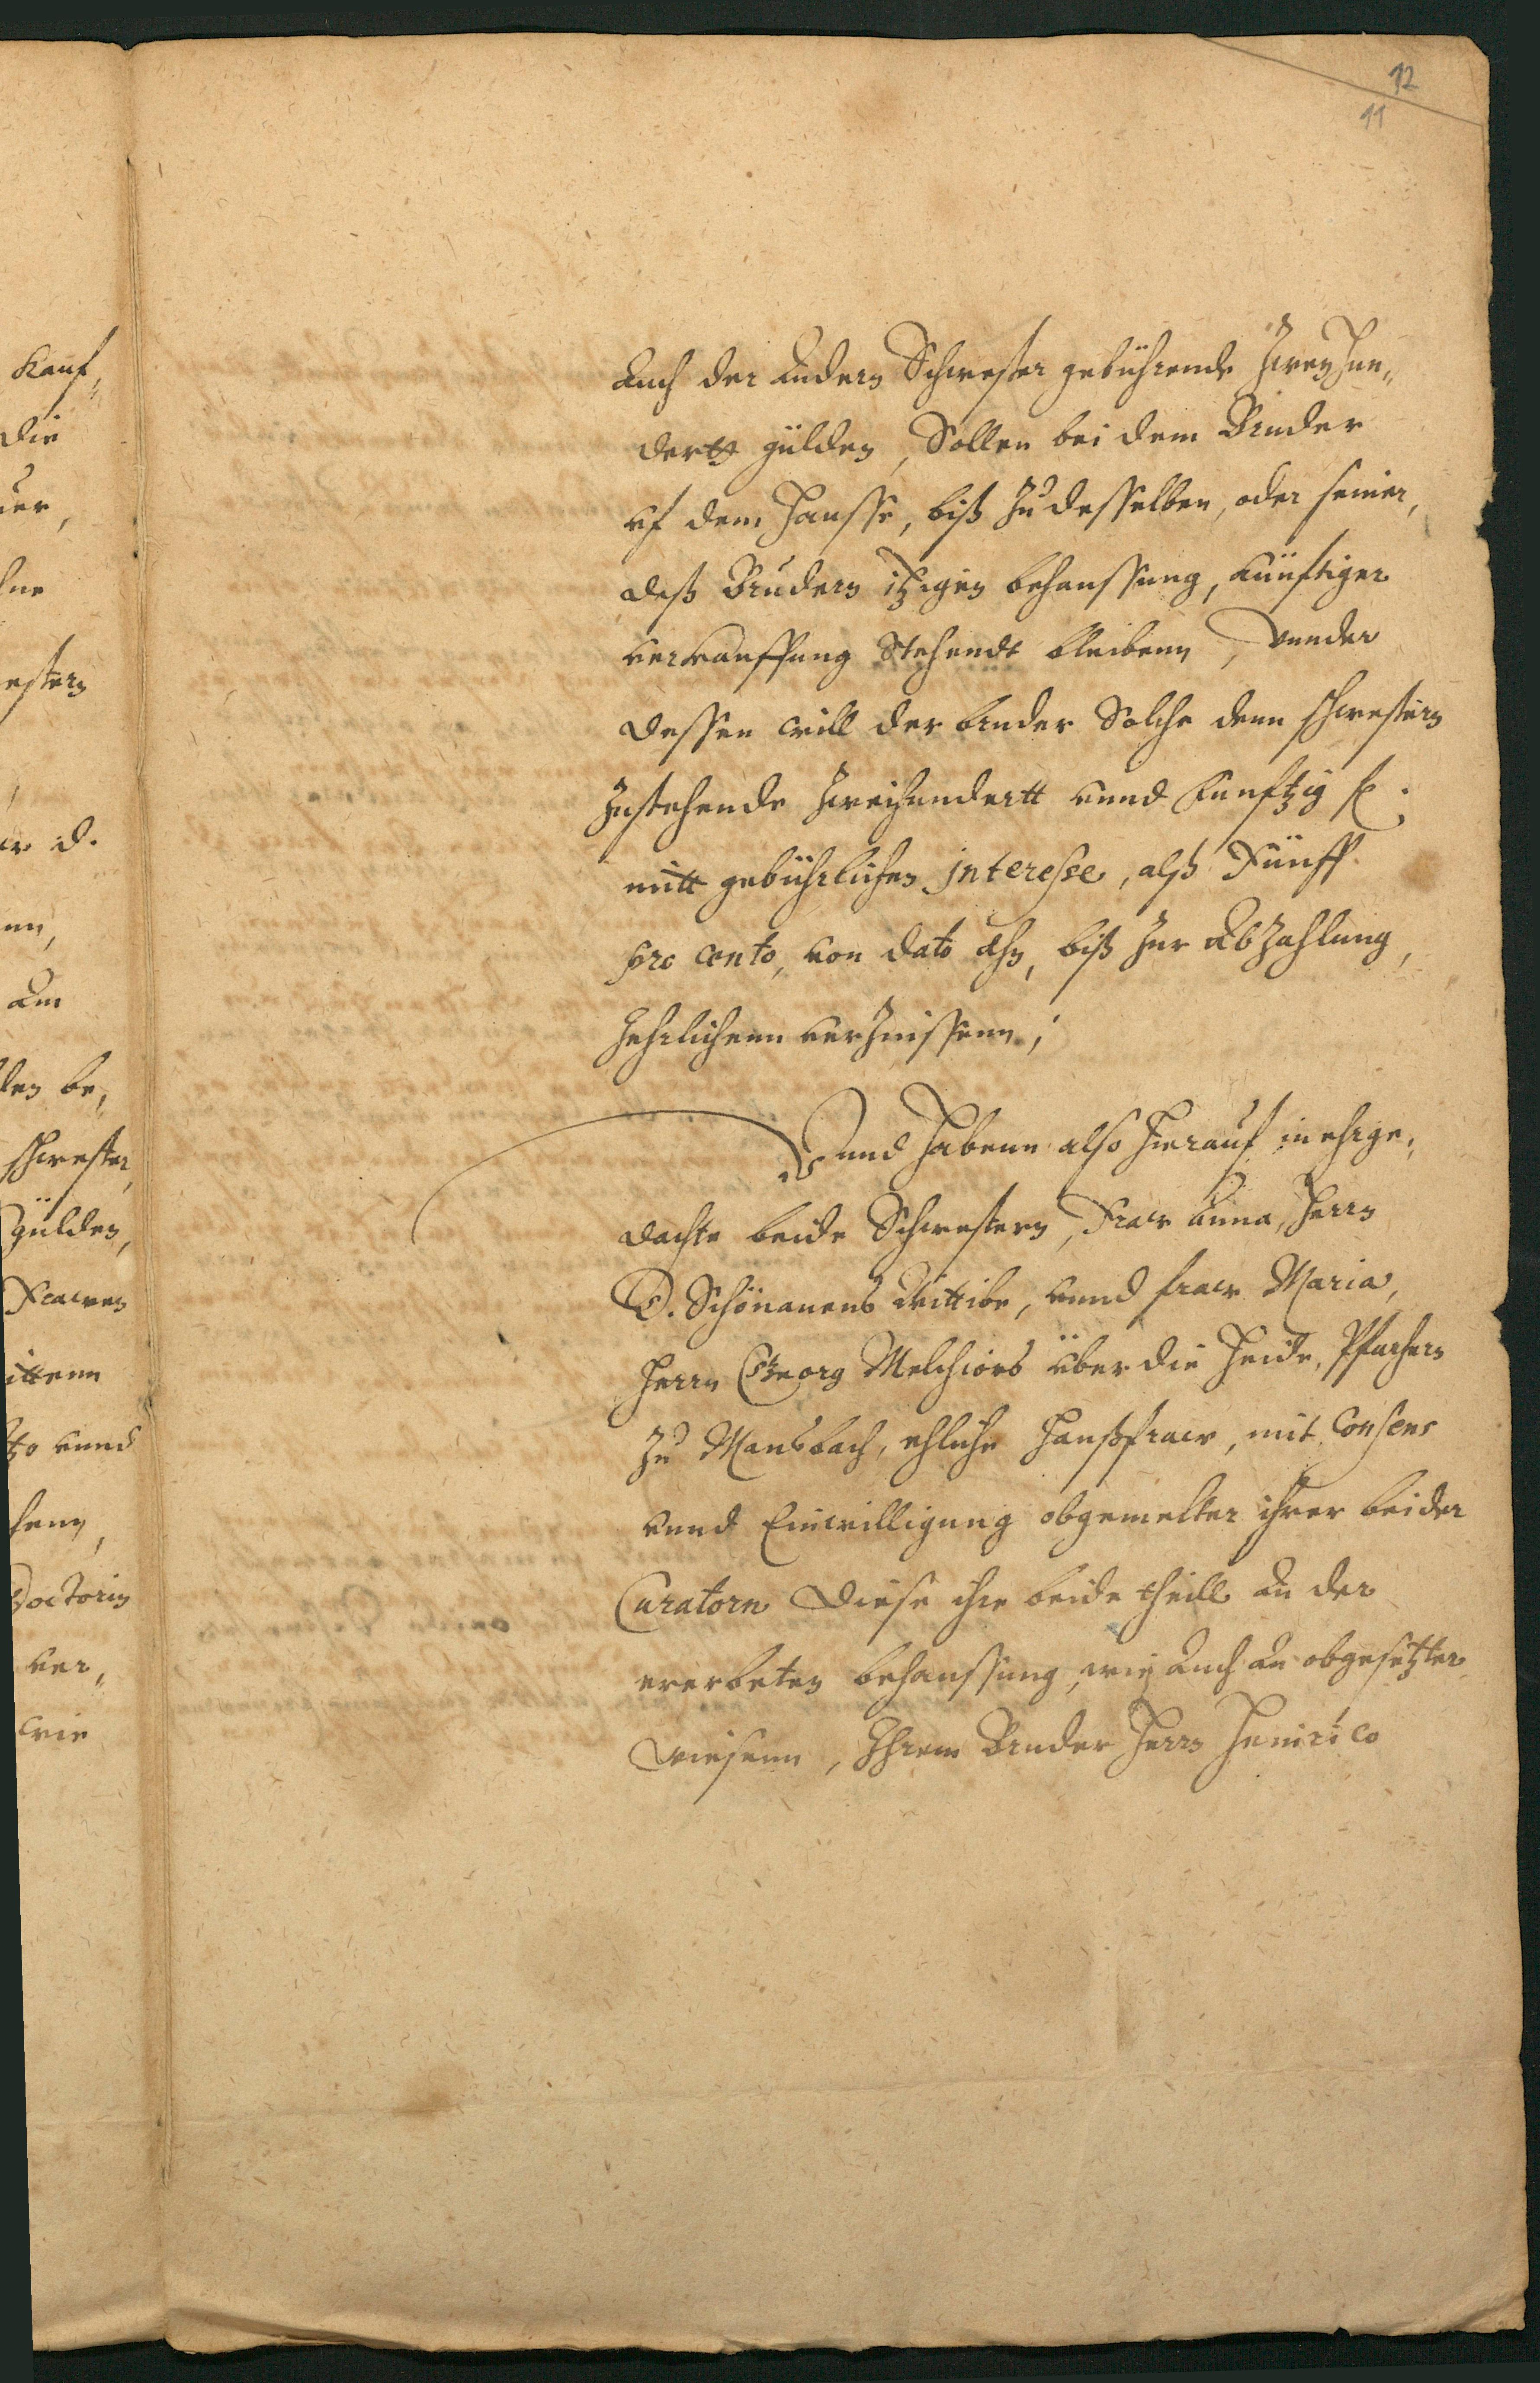 12
11
Kauf„
die
uer,
hne
estern
er d.
nn,
am
den be„
schwester,
gülden,
Frawen
ittenn
tzo vnnd
henn,
Doctorin
ver„
wie
Auch der Andern Schwester gebührende Zweyhun„
dertt gülden, Sollen bei dem Bruder
vf dem Hausse, biß Zu desselben, oder seiner,
deß Bruders itzigen behaussung, künftiger
verkauffung Stehendt bleibenn, vnnder
dessen will der bruder Solche denn schwestern
Zustehende Zweihundertt vnnd funftzig fl.
mitt gebührlichen jnteresse, alß Fünff
pro cento, von dato ahn, biß Zur abZahlung,
Jehrlichenn verZinssenn;
Vnnd habenn also hierauf mehrge„
dachte beide Schwestern, Fraw Anna, Herrn
D. Schönauens Wittibe, vnnd fraw Maria,
Herrn Georg Melchiors über die Heide, Pfarhern
Zu Mansbach, ehliche haußfraw, mit Consens
vnnd Einwilligung obgemelter ihrer beider
Curatorn diese ihre beide theill an der
ererbeten behaussung, wie auch an obgesetzter
Wiesenn, Ihrem Bruder Herrn Henrico